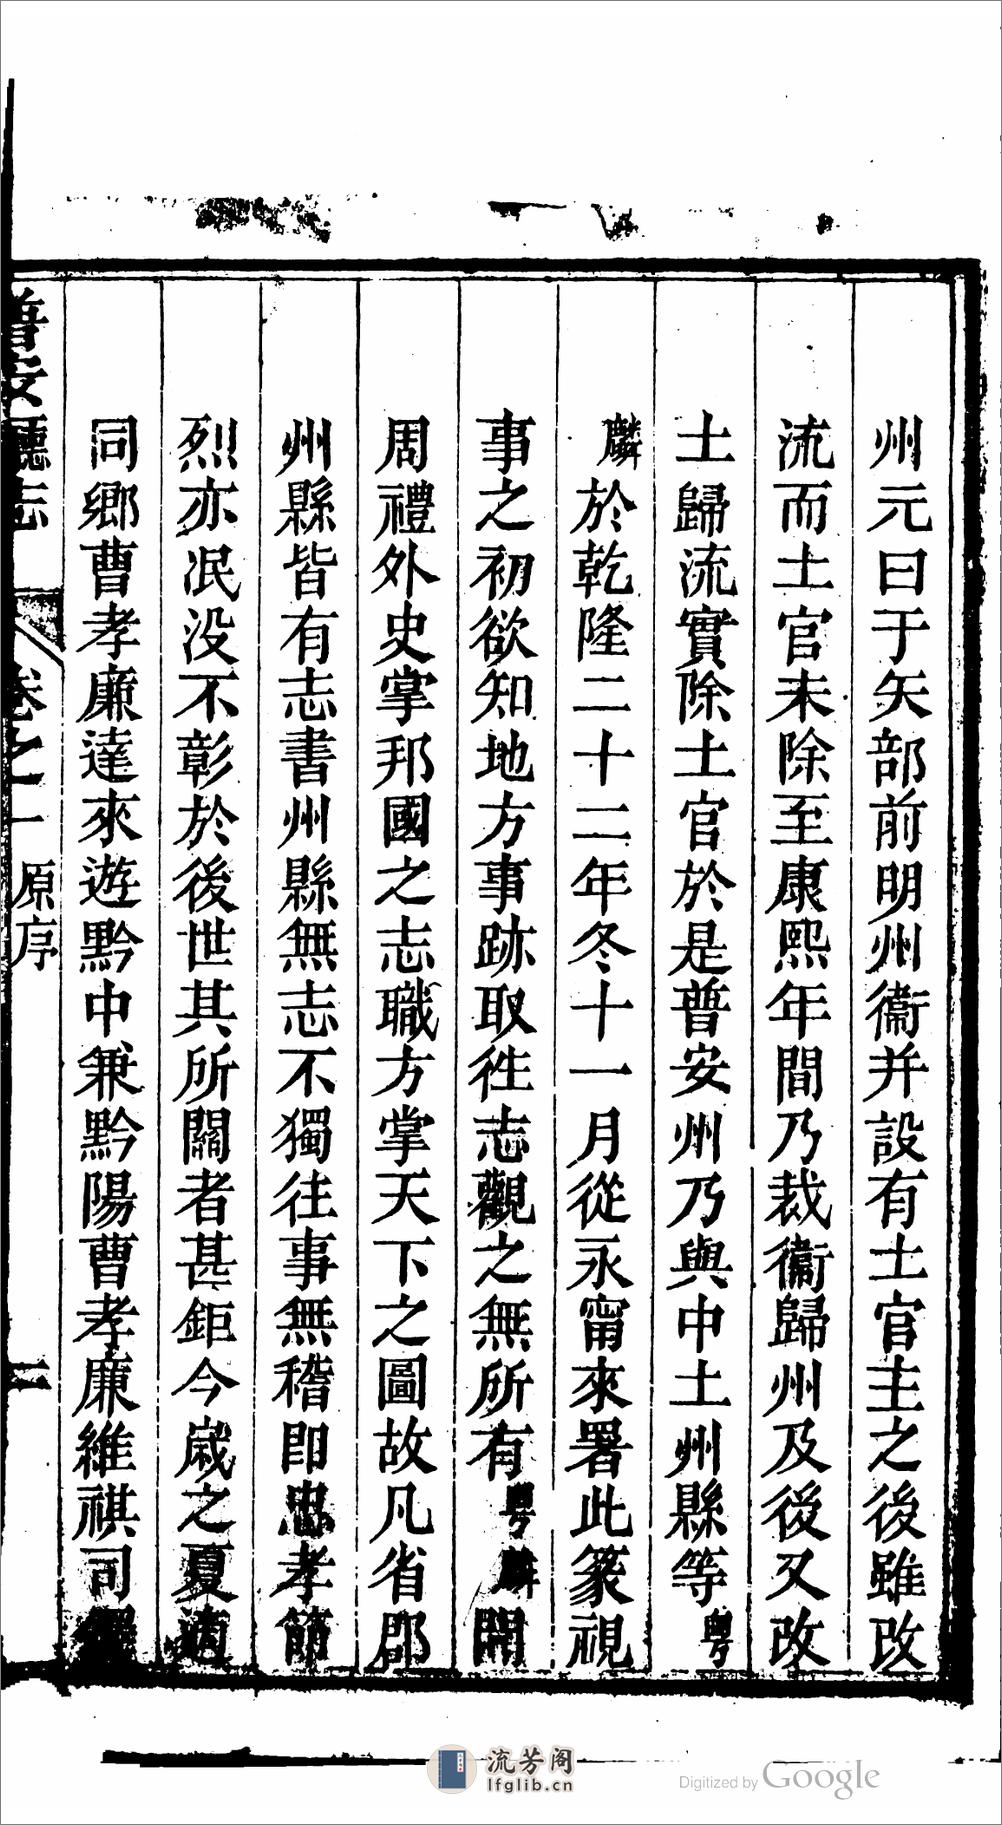 州元曰于矢部前明州衞并設有土官主之後雖改
流而土官未除至康熙年間乃裁衞歸州及後又改
土歸流實除土官於是普安州乃與中土州縣等粤
麟於乾隆二十二年冬十一月從永甯來署此篆視
事之初欲知地方事跡取徃志觀之無所有粤麟聞
周禮外史掌邦國之志職方掌天下之圖故凡省郡
州縣皆有志書州縣無志不獨往事無稽即忠孝節
烈亦泯没不彰於後世其所關者甚鉅今歲之夏適
同鄉曹孝廉達來遊黔中兼黔陽曹孝廉維祺司
普安廳志 卷之一 原序 二
流芳阁
lfglib.cn
Digitized by Google